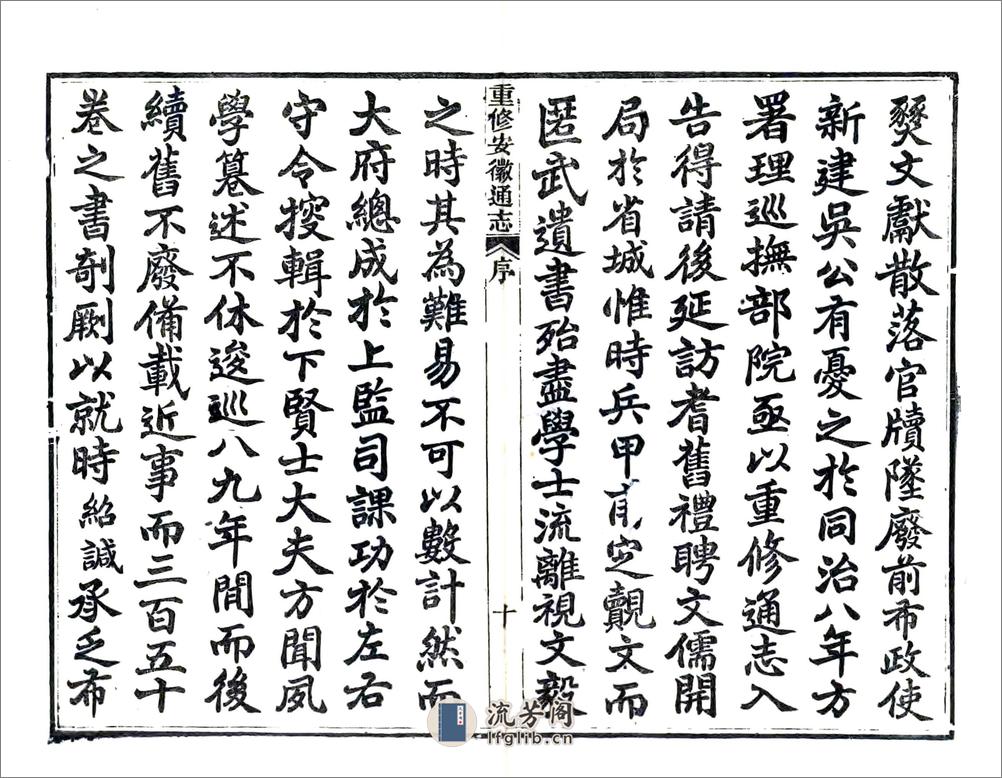 爕文獻散落官牘墜廢前布政使
新建吳公有憂之於同治八年方
署理巡撫部院亟以重修通志入
告得請後延訪耆舊禮聘文儒開
局於省城惟時兵甲甫定覿文而
匿武遺書殆盡學士流離視文毅
重修安徽通志
序
十
之時其為難易不可以數計然而
大府總成於上監司課功於左右
守令搜輯於下賢士大夫方聞夙
學篹述不休逡巡八九年間而後
續舊不廢備載近事而三百五十
卷之書剞劂以就時紹諴承乏布
流芳阁
lfglib.cn